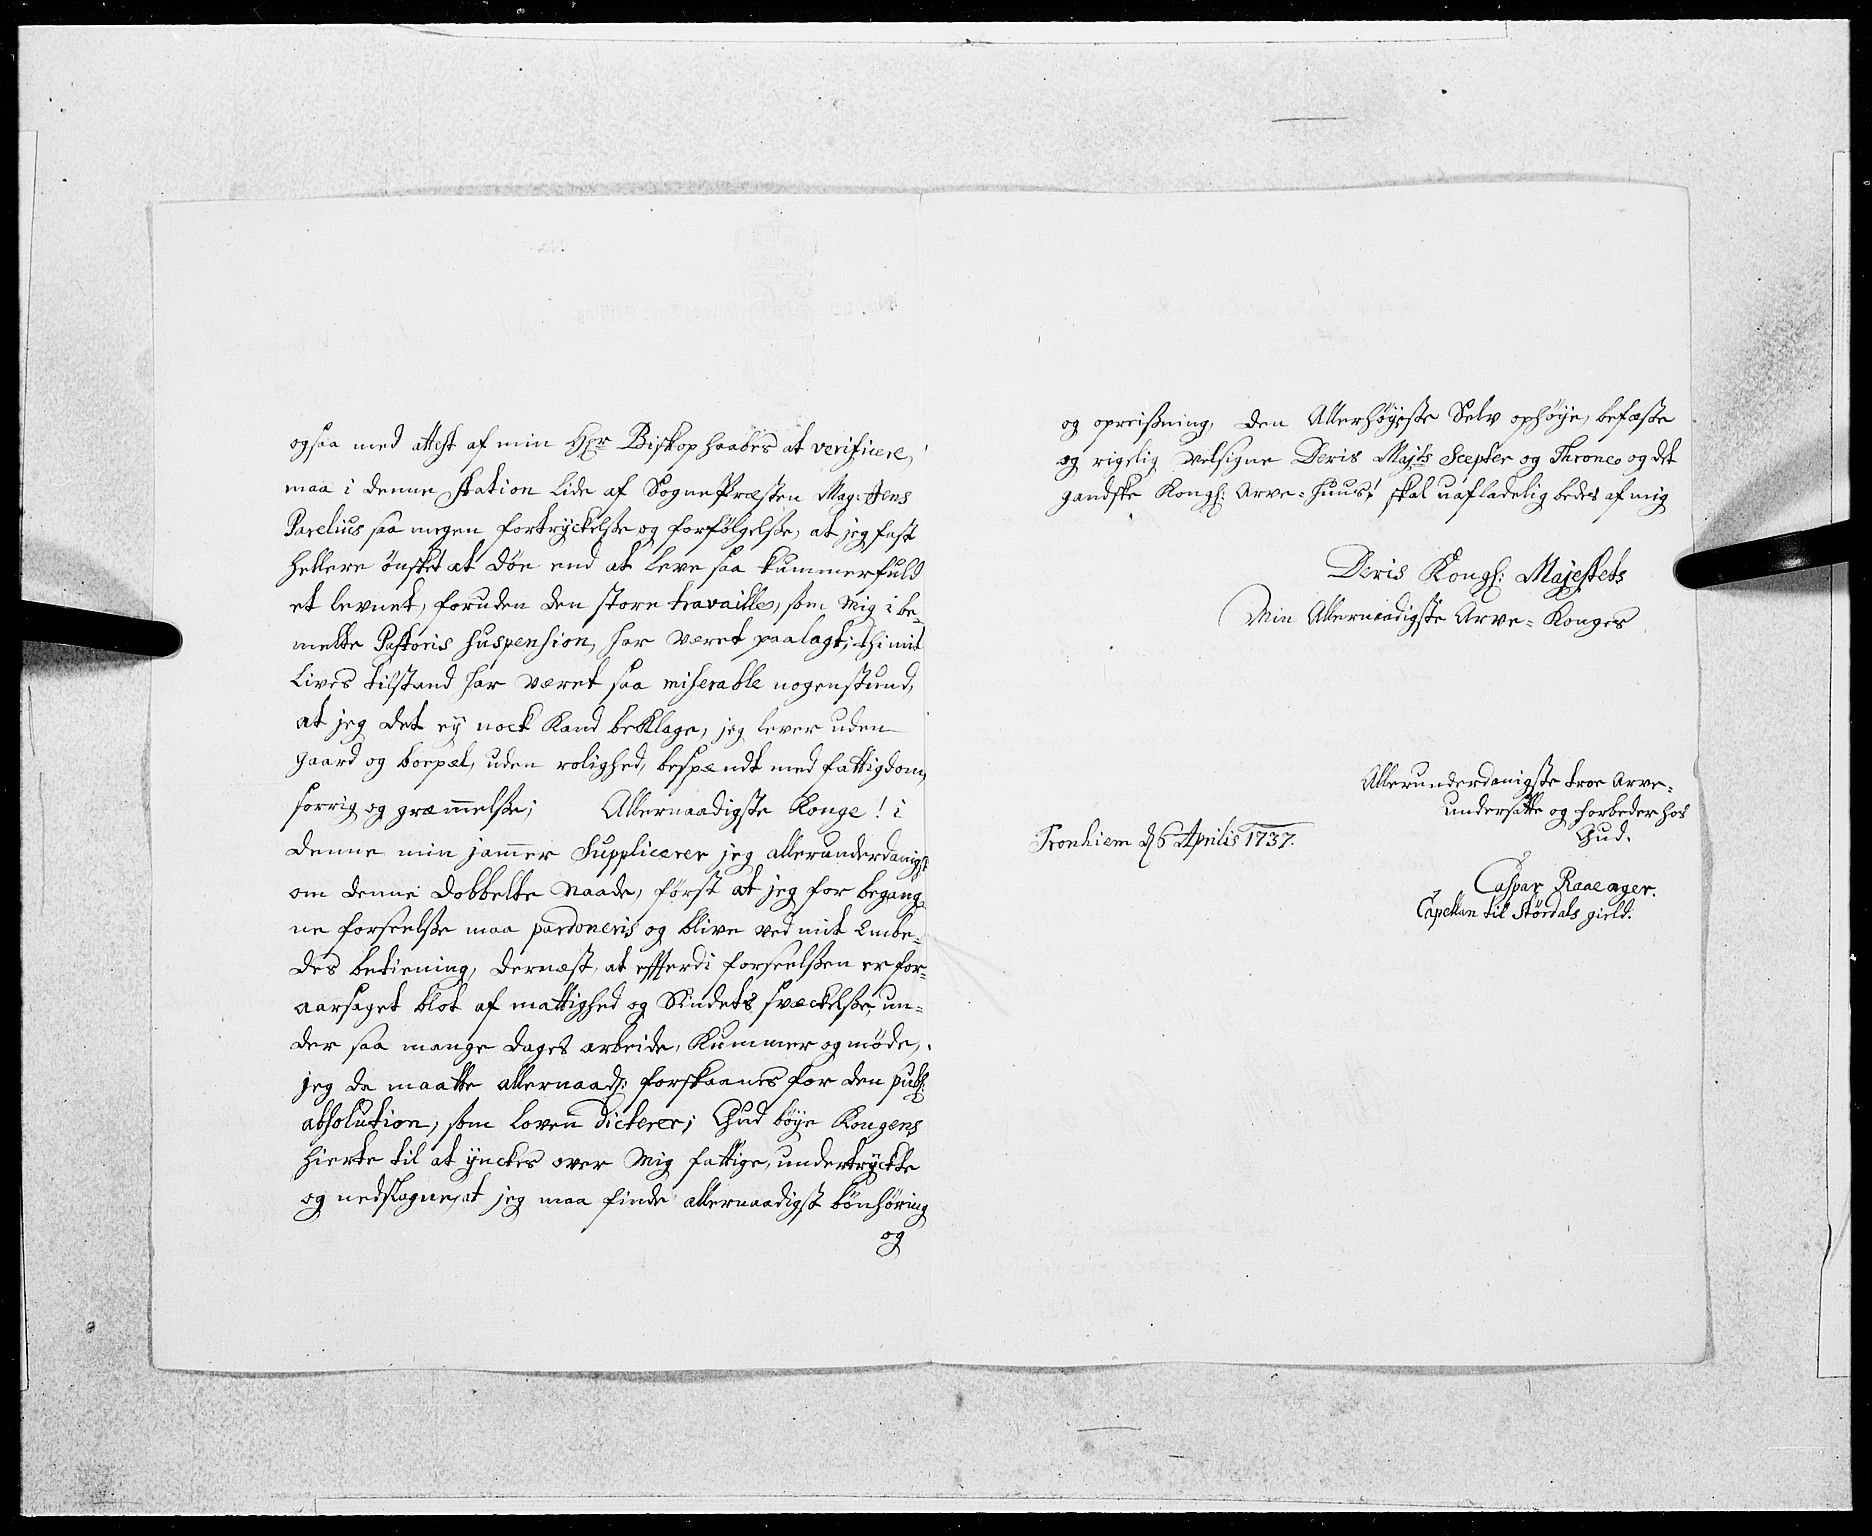 ogsaa med attest af min Hr Biskop haabes at verificere,
maa i denne station lide af SognePræsten Mag: Jens
Parelius saa megen fortryckelse og forfølgelse, at jeg fast
hellere ønsket at døe end at leve saa kummerfuld
et levnet, foruden den store travaille, som mig i be-
melte Pastoris suspension, har været paalagt; thi mit
Lives tilstand har været saa miserable nogen stund,
at jeg det ey nock kand beklage, jeg lever uden
gaard og boepæl, uden rolighed, bespændt med fattigdom,
sorrig og græmmelse; Allernaadigste Konge! i
denne min jammer Supplicerer jeg allerunderdanigst
om denne dobbelte Naade, først at jeg for begang-
ne forseelse maa pardoneris og blive ved mit Embe-
des betiening, dernæst, at efftterdi forseelsen er for-
aarsaget blot af mattighed og Sindets sveckelse, un-
der saa mange dages arbeide, Kummer og møde,
jeg da maatte allernaad: forskaanes for den publ:
absolution, som loven dicterer; Gud bøye Kongens
hierte til at ynckes over mig fattige, undertryckte
og nedslagne, at jeg maa finde allernaadigst bønhøring
og
og opreisning, den Allerhøyeste Selv ophøye, befæste
og rigelig velsigne Deris Majts Scepter og Throne og det
gandske Kongl: Arve-Huus! skal uafladelig bedes af mig
Deris Kongl: Majestets
Min Allernaadigste Arve-Konges
Allerunderdanigste troe Arve-
undersatte og forbeder hos
Gud.
Tronhiem d 6 Aprilis 1737.
Caspar Raaeager.
Capellan til Størdals gield.